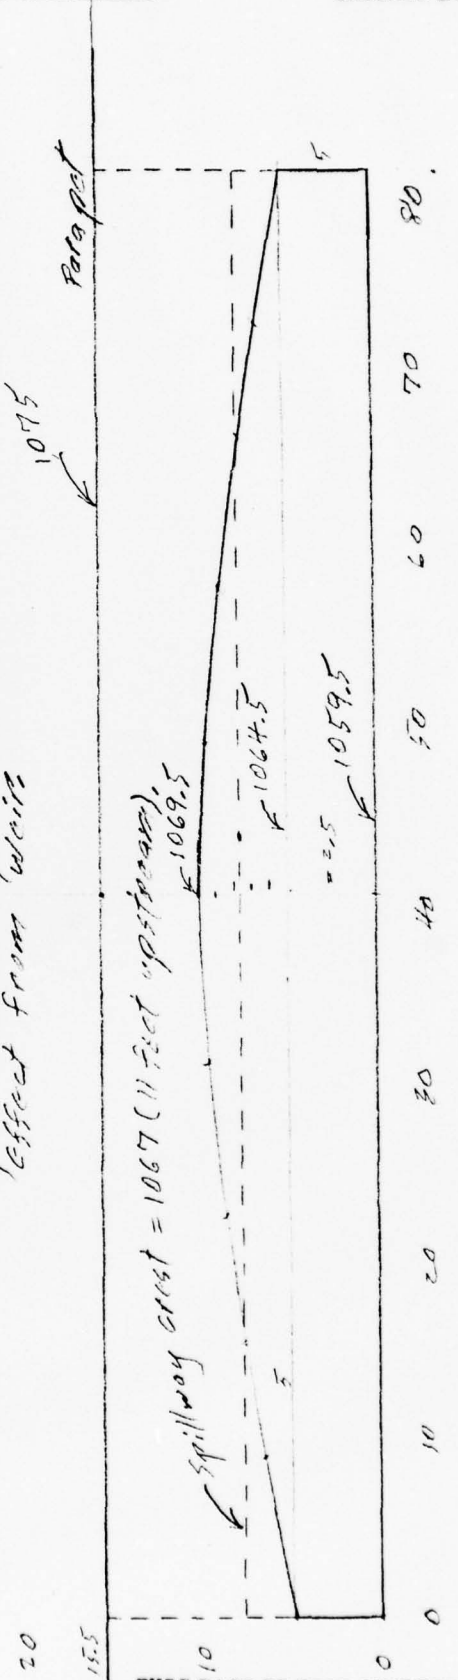 'Effect from 'weir
20
15.5
10
0
1075
Parapet
Spillway crest = 1067 (11 feet upstream).
1069.5
1064.5
1059.5
= 2.5
5
5
0 10 20 30 40 50 60 70 80